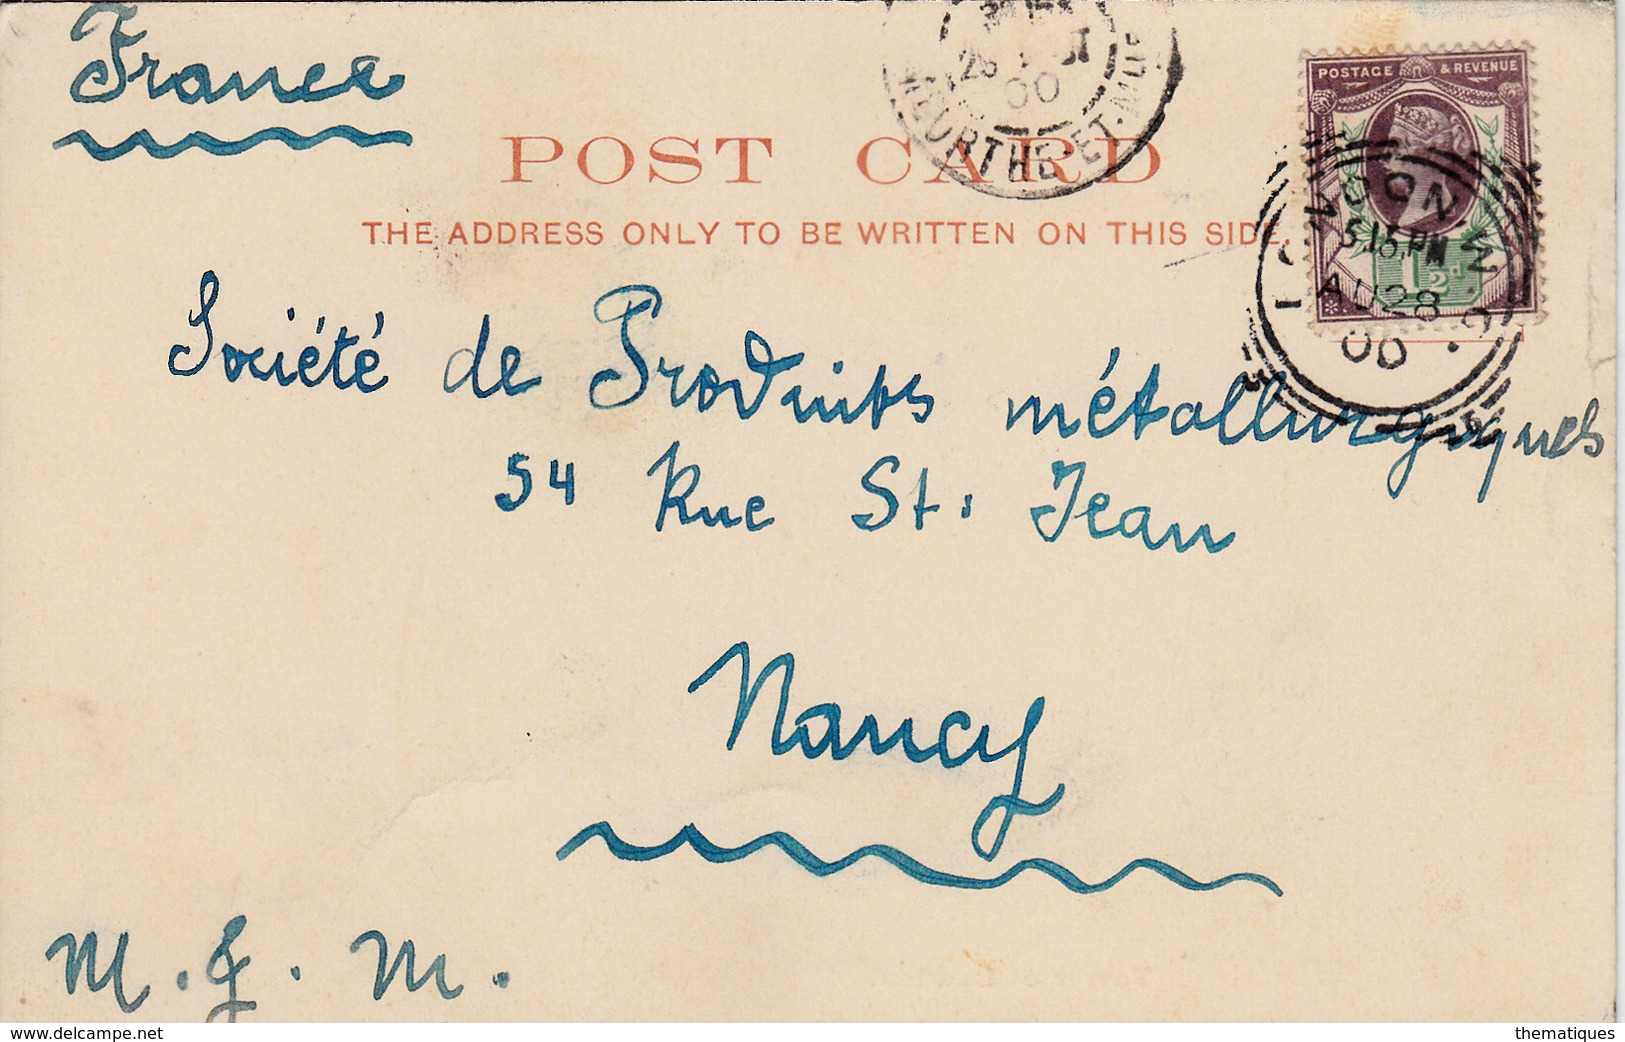 France
MEURTHE-ET-M
28
00
POSTAGE & REVENUE
POST CARD
THE ADDRESS ONLY TO BE WRITTEN ON THIS SIDE.
LONDON. W
5.15 PM
AU 28
00
1½d
Société de Produits métallurgiques
54 Rue St. Jean
Nancy
M. J. M.
www.delcampe.net
thematiques